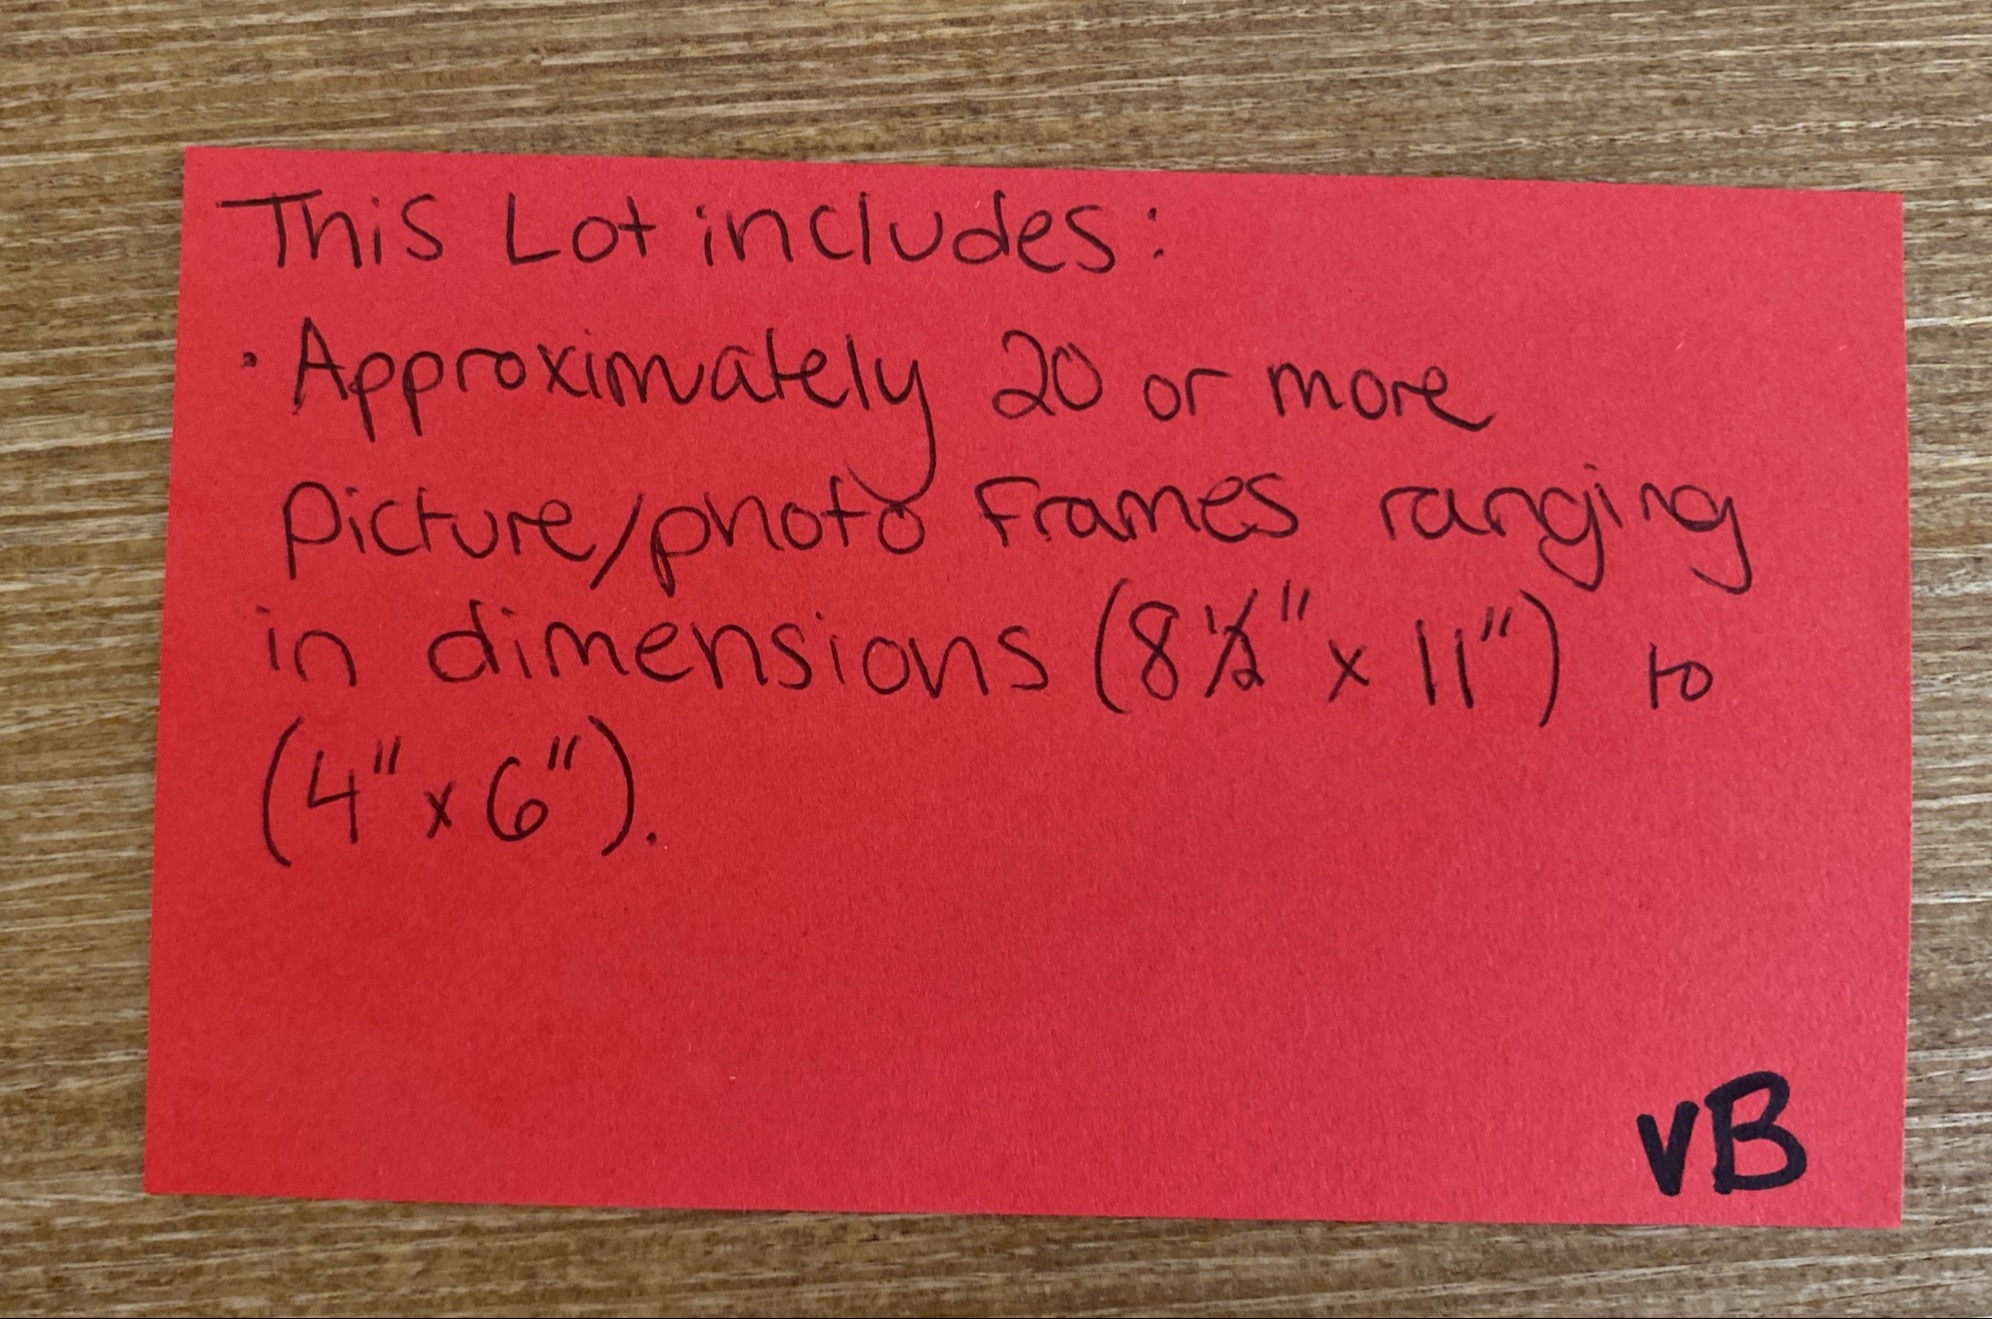 This Lot includes:
• Approximately 20 or more
picture/photo frames ranging
in dimensions (8 1/2" x 11") to
(4" x 6").
VB